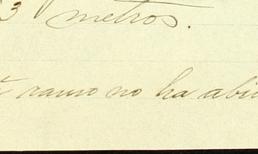 3 metros.
ramo no ha abi